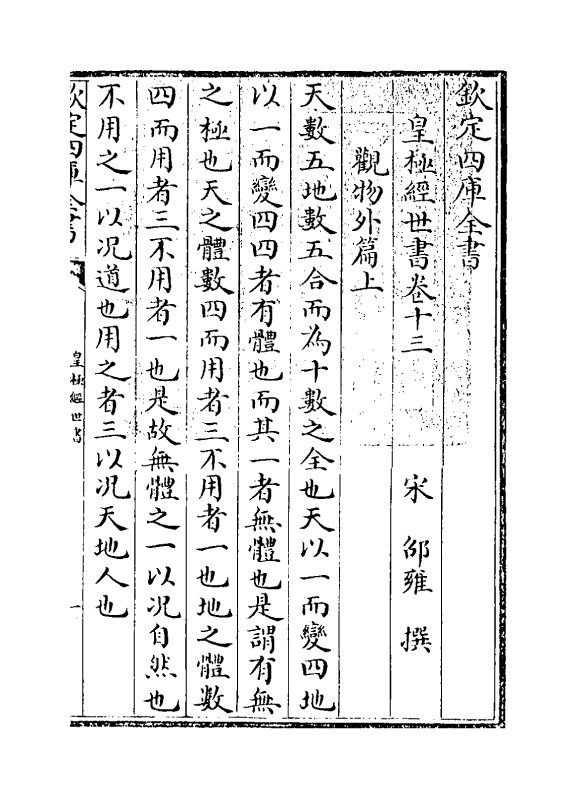 欽定四庫全書
皇極經世書卷十三
宋 邵雍 撰
觀物外篇上
天數五地數五合而為十數之全也天以一而變四地
以一而變四四者有體也而其一者無體也是謂有無
之極也天之體數四而用者三不用者一也地之體數
四而用者三不用者一也是故無體之一以况自然也
不用之一以况道也用之者三以况天地人也
欽定四庫全書
皇極經世書
一